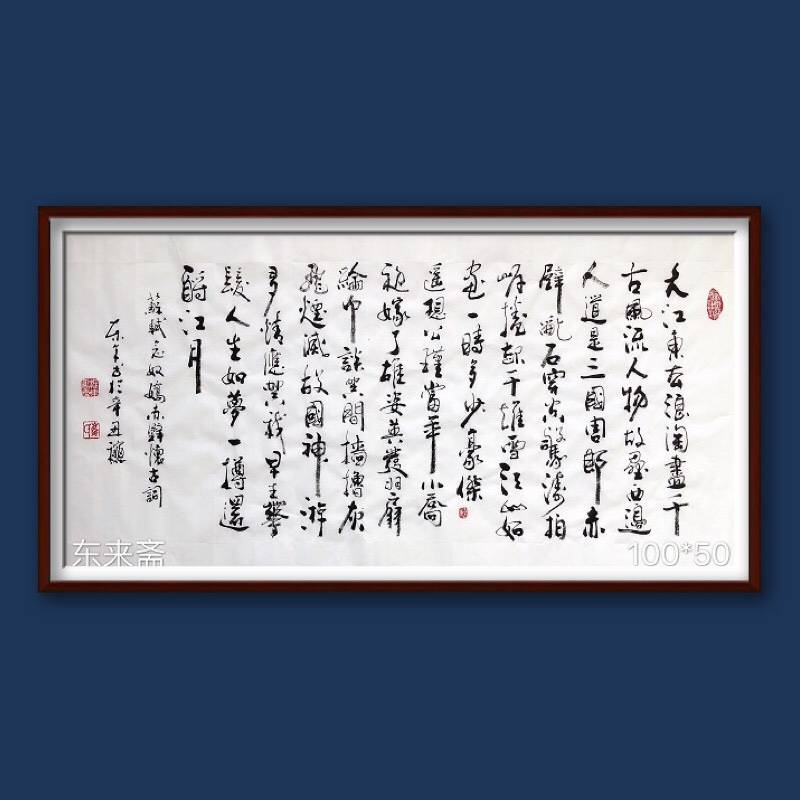 大江東去浪淘盡千
古風流人物故壘西邊
人道是三國周郎赤
壁亂石穿空驚濤拍
岸捲起千堆雪江山如
畫一時多少豪傑
遙想公瑾當年小喬
初嫁了雄姿英發羽扇
綸巾談笑間檣櫓灰
飛煙滅故國神遊
多情應笑我早生華
髮人生如夢一樽還
酹江月
蘇軾念奴嬌赤壁懷古詞
東來書於辛丑
东来斋
100*50